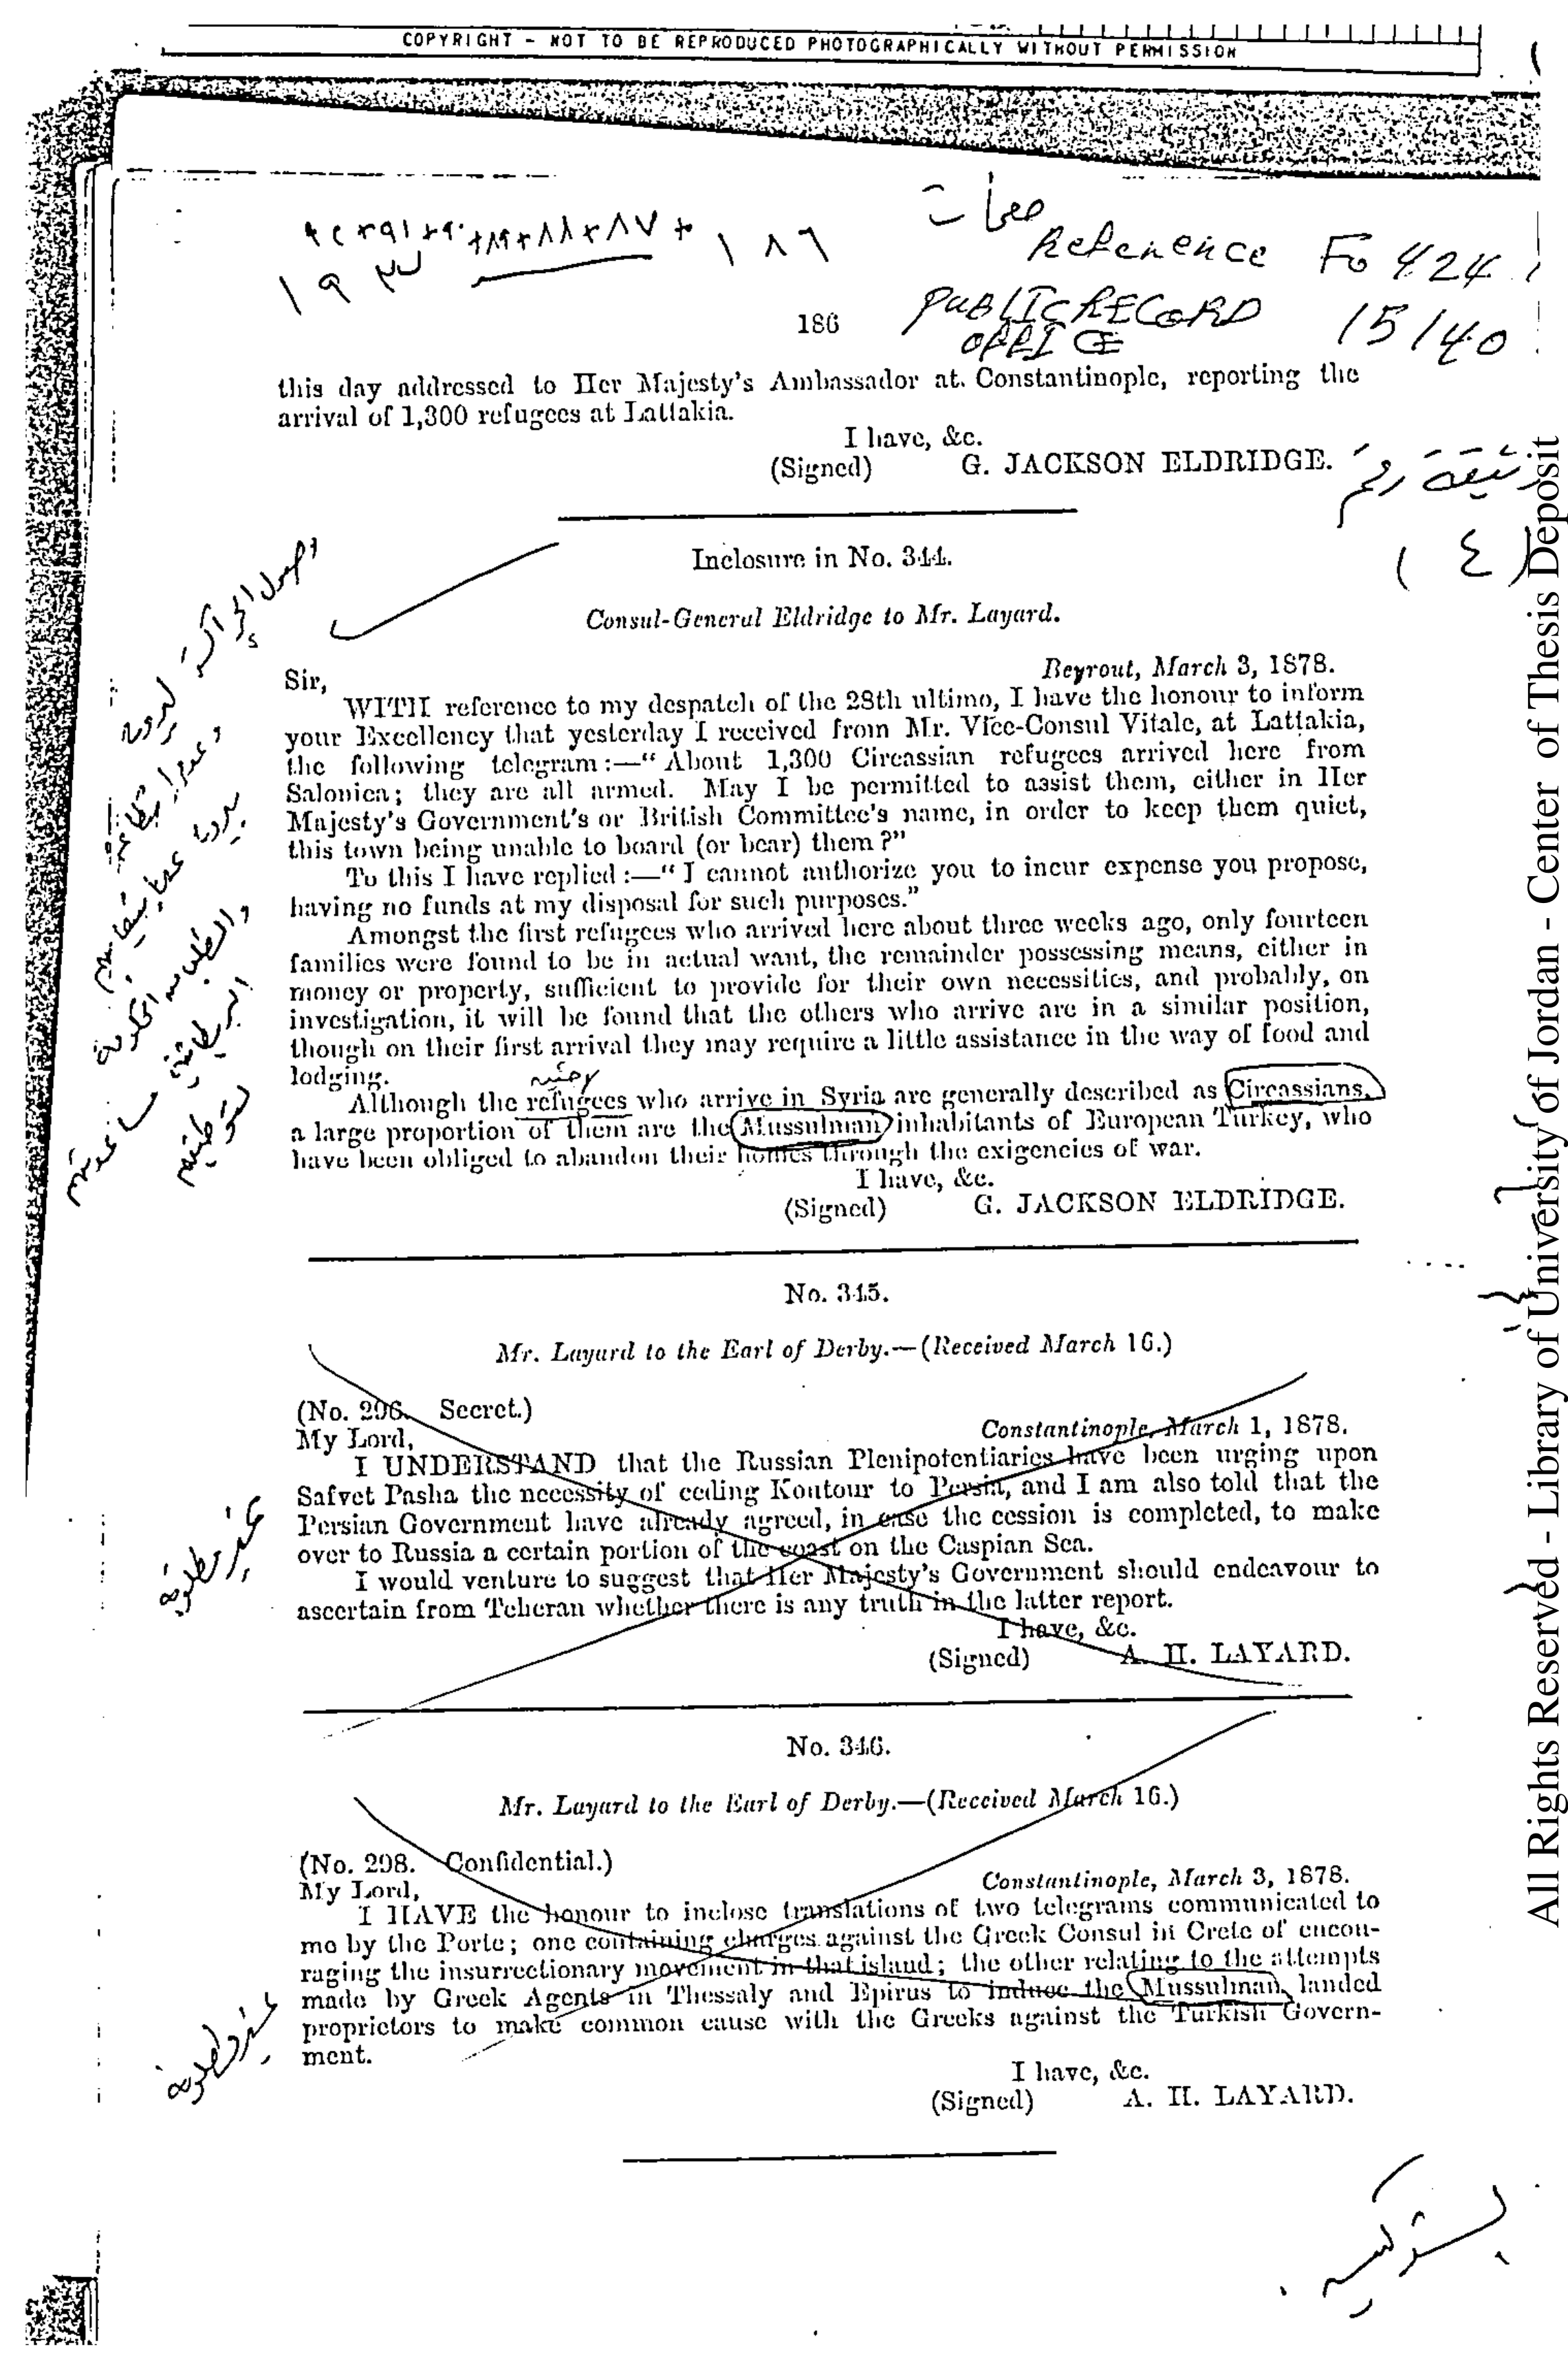 COPYRIGHT - NOT TO BE REPRODUCED PHOTOGRAPHICALLY WITHOUT PERMISSION
صفحات
١٨٦ + ٨٧ + ٨٨ + ٨٩ + ٩٠ + ٩١ + ٩٢
١٩٣
Reference FO 424
PUBLIC RECORD 15/40
OFFICE
186
this day addressed to Her Majesty's Ambassador at Constantinople, reporting the
arrival of 1,300 refugees at Lattakia.
I have, &c.
(Signed) G. JACKSON ELDRIDGE.
وثيقة رقم
(٤)
Inclosure in No. 344.
Consul-General Eldridge to Mr. Layard.
Beyrout, March 3, 1878.
Sir,
WITH reference to my despatch of the 28th ultimo, I have the honour to inform
your Excellency that yesterday I received from Mr. Vice-Consul Vitale, at Lattakia,
the following telegram:—"About 1,300 Circassian refugees arrived here from
Salonica; they are all armed. May I be permitted to assist them, either in Her
Majesty's Government's or British Committee's name, in order to keep them quiet,
this town being unable to board (or bear) them?"
To this I have replied:—"I cannot authorize you to incur expense you propose,
having no funds at my disposal for such purposes."
Amongst the first refugees who arrived here about three weeks ago, only fourteen
families were found to be in actual want, the remainder possessing means, either in
money or property, sufficient to provide for their own necessities, and probably, on
investigation, it will be found that the others who arrive are in a similar position,
though on their first arrival they may require a little assistance in the way of food and
lodging.
Although the refugees who arrive in Syria are generally described as Circassians,
a large proportion of them are the Mussulman inhabitants of European Turkey, who
have been obliged to abandon their homes through the exigencies of war.
I have, &c.
(Signed) G. JACKSON ELDRIDGE.
No. 345.
Mr. Layard to the Earl of Derby.—(Received March 16.)
(No. 296. Secret.)
Constantinople, March 1, 1878.
My Lord,
I UNDERSTAND that the Russian Plenipotentiaries have been urging upon
Safvet Pasha the necessity of ceding Kontour to Persia, and I am also told that the
Persian Government have already agreed, in case the cession is completed, to make
over to Russia a certain portion of the coast on the Caspian Sea.
I would venture to suggest that Her Majesty's Government should endeavour to
ascertain from Teheran whether there is any truth in the latter report.
I have, &c.
(Signed) A. H. LAYARD.
غير مطلوبة
No. 346.
Mr. Layard to the Earl of Derby.—(Received March 16.)
(No. 298. Confidential.)
Constantinople, March 3, 1878.
My Lord,
I HAVE the honour to inclose translations of two telegrams communicated to
me by the Porte; one containing charges against the Greek Consul in Crete of encou-
raging the insurrectionary movement in that island; the other relating to the attempts
made by Greek Agents in Thessaly and Epirus to induce the Mussulman landed
proprietors to make common cause with the Greeks against the Turkish Govern-
ment.
I have, &c.
(Signed) A. H. LAYARD.
غير مطلوبة
All Rights Reserved - Library of University of Jordan - Center of Thesis Deposit